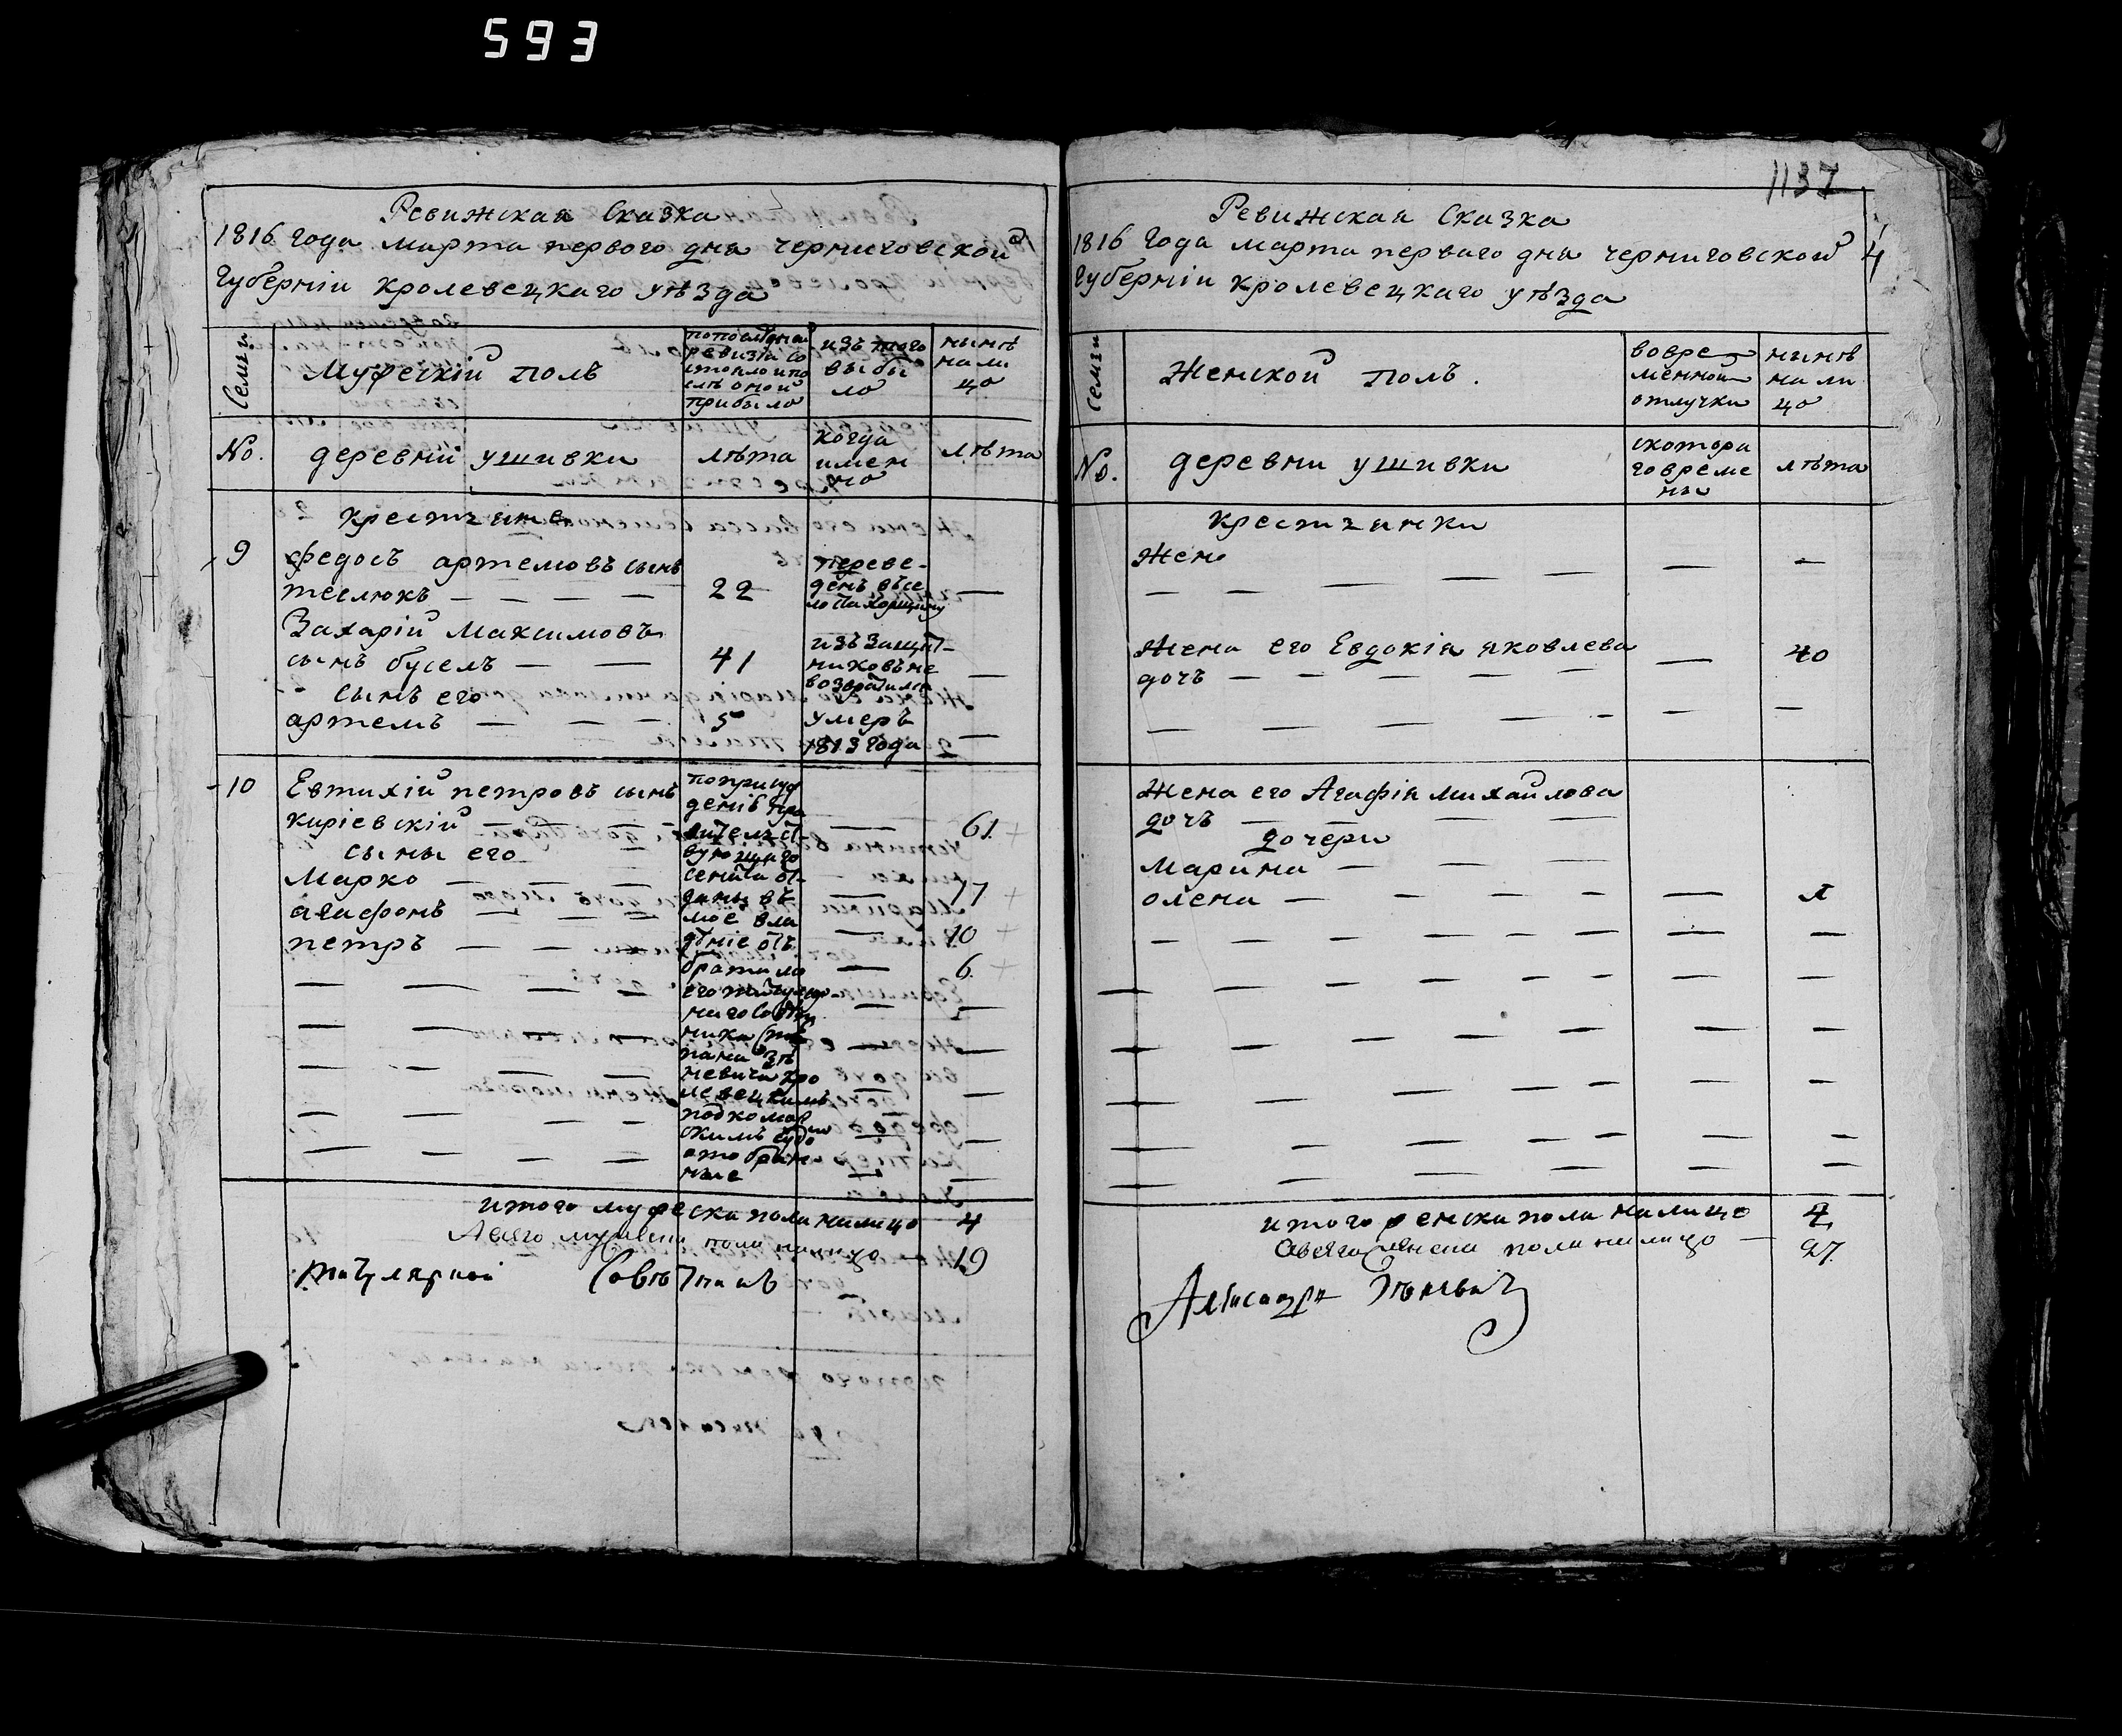 593
Ревижская Сказка
1816 года марта первого дня черниговской
Губерніи кролевецкаго уѣзда
Семьи
Мужескій полъ
изъ того
выбы
ло
нынѣ
нали
цо
No.
деревни ушивки
лѣта
когда
имен
но
лѣта
крестяне
9
федосъ артемовъ сынъ
теслюкъ
22
переве-
денъ въсе
ло
Захарій Максимовъ
сынъ буселъ
41
изъ
никовъ не
возвратился
сынъ его
артемъ
5
умеръ
1813 года
10
Евтихій петровъ сынъ
киріевскій
61
сыны его
Марко
17
агафонъ
10
петръ
6
прибыло
мое вла
дѣніе отъ
брата мо
его
левецкимъ
подкомор
скимъ
отобран
ные
итого мужеска пола налицо 4
Авсего мужеска пола налицо 19
Титулярной Советникъ
1137
4
Ревижская Сказка
1816 Года марта перваго дня черниговской
Губерніи кролевецкаго уѣзда
Семьи
Женской полъ.
вовре
менной
отлучки
нынѣ
нали
цо
No.
деревни ушивки
скотора
говреме
ни
лѣта
крестянки
Жен
Жена его Евдокія яковлева
дочъ
40
Жена его Агафія михайлова
дочъ
дочери
Марина
олена
итого женска пола налицо 4
Авсего женска пола налицо 27
Александръ